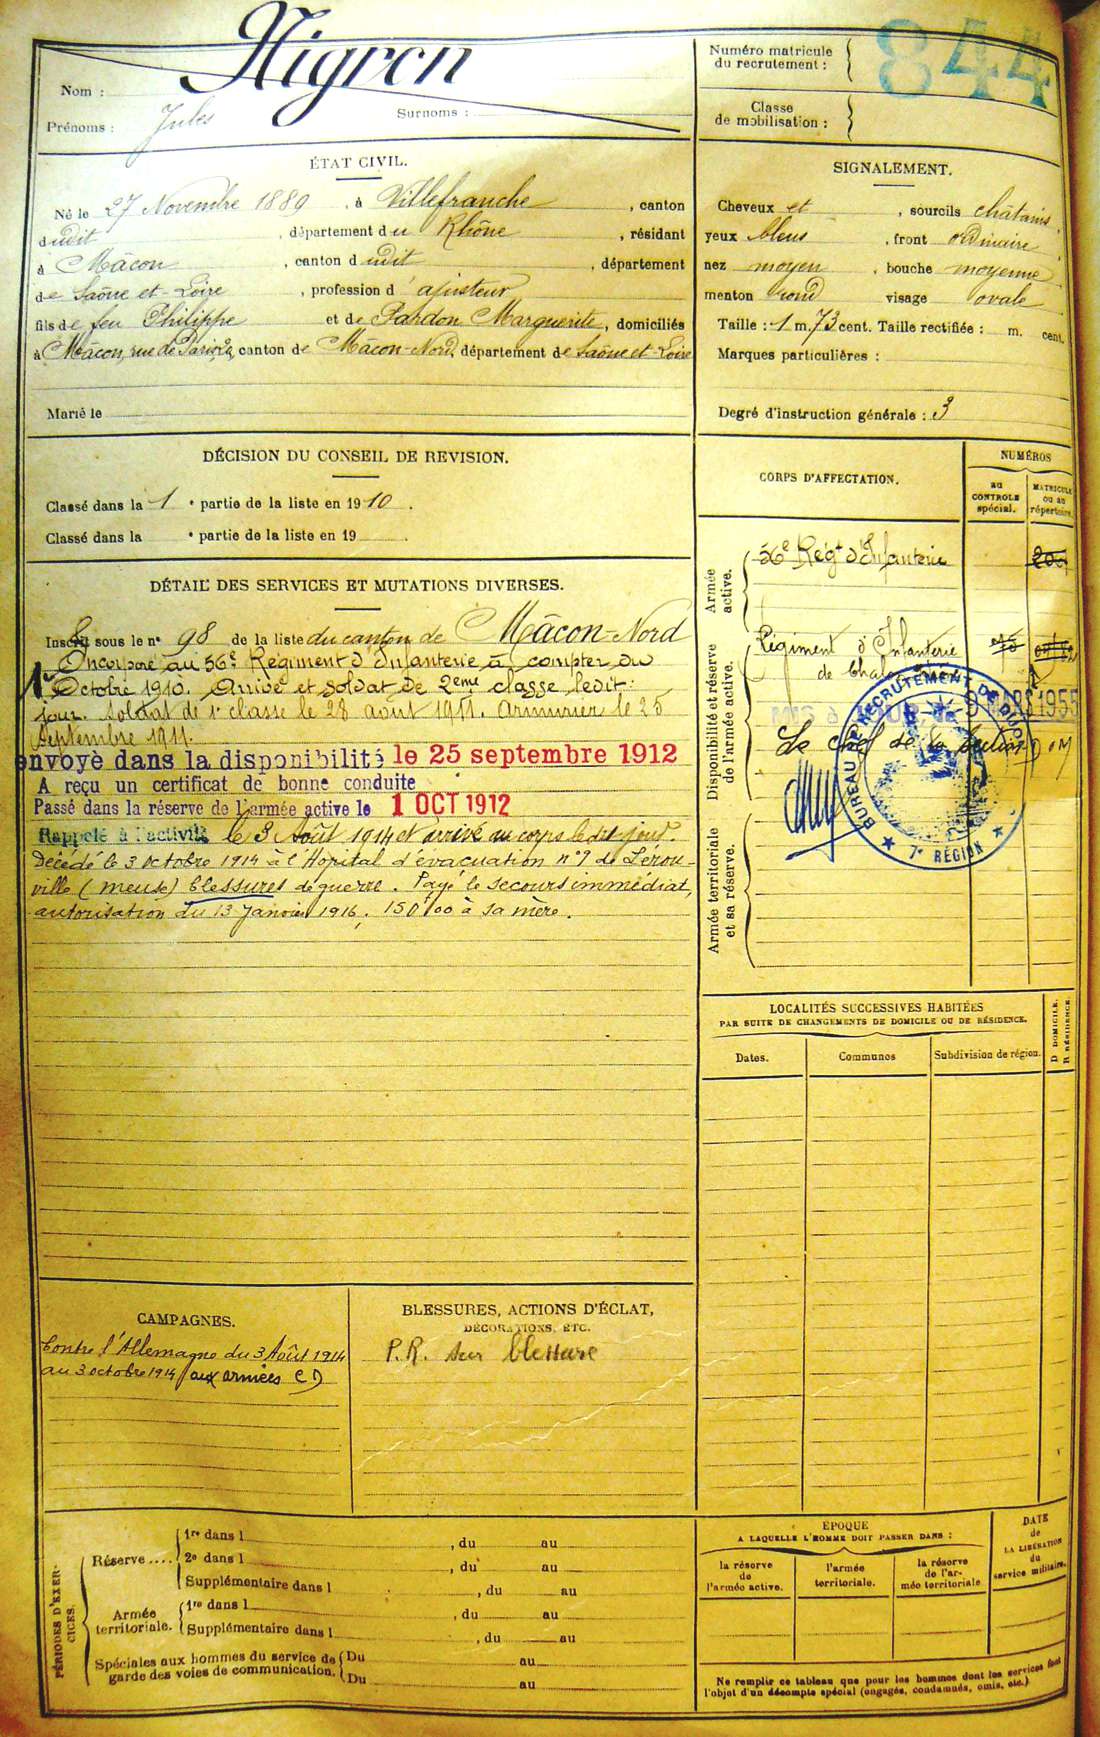 Nom : Nigron
Prénoms : Jules Surnoms :
Numéro matricule du recrutement : 844
Classe de mobilisation :
ÉTAT CIVIL.
Né le 27 Novembre 1889, à Villefranche, canton
dudit, département du Rhône, résidant
à Mâcon, canton dudit, département
de Saône et Loire, profession d'ajusteur
fils de feu Philippe et de Pardon Marguerite, domiciliés
à Mâcon, rue de Paris, canton de Mâcon-Nord, département de Saône et Loire
Marié le
SIGNALEMENT.
Cheveux et, sourcils châtains,
yeux bleus, front ordinaire
nez moyen, bouche moyenne
menton rond visage ovale
Taille : 1 m. 73 cent. Taille rectifiée : m. cent.
Marques particulières :
Degré d'instruction générale : 3
DÉCISION DU CONSEIL DE REVISION.
Classé dans la 1e partie de la liste en 1910.
Classé dans la e partie de la liste en 19
DÉTAIL DES SERVICES ET MUTATIONS DIVERSES.
Inscrit sous le no 98 de la liste du canton de Mâcon-Nord
Incorporé au 56e Régiment d'Infanterie à compter du
1er Octobre 1910. Arrivé et soldat de 2eme classe ledit
jour. Soldat de 1e classe le 28 août 1911. Armurier le 25
Septembre 1911.
envoyé dans la disponibilité le 25 septembre 1912
A reçu un certificat de bonne conduite
Passé dans la réserve de l'armée active le 1 OCT 1912
Rappelé à l'activité le 3 Août 1914 et arrivé au corps le dit jour.
Décédé le 3 octobre 1914 à l'Hôpital d'évacuation n° 9 de Lérou-
ville (Meuse) blessures de guerre. Payé le secours immédiat,
autorisation du 13 Janvier 1916, 150f00 à sa mère.
CORPS D'AFFECTATION.
NUMÉROS
au CONTROLE spécial.
MATRICULE ou au répertoire.
Armée active.
56e Régt d'Infanterie
Disponibilité et réserve de l'armée active.
Régiment d'Infanterie
de Chalon
MIS à JOUR le 9 MARS 1955
Le chef de la Section D M
BUREAU DE RECRUTEMENT DE DIJON
★ 7e RÉGION ★
Armée territoriale et sa réserve.
LOCALITÉS SUCCESSIVES HABITÉES
PAR SUITE DE CHANGEMENTS DE DOMICILE OU DE RÉSIDENCE.
Dates. Communes Subdivision de région. D DOMICILE. R RÉSIDENCE.
CAMPAGNES.
Contre l'Allemagne du 3 Août 1914
au 3 octobre 1914 aux armées CD
BLESSURES, ACTIONS D'ÉCLAT,
DÉCORATIONS, ETC.
P.R. sur blessure
PÉRIODES D'EXERCICES.
Réserve .... 1re dans l , du au
2e dans l , du au
Supplémentaire dans l , du au
Armée territoriale. 1re dans l , du au
Supplémentaire dans l , du au
Spéciales aux hommes du service de garde des voies de communication. Du au
Du au
ÉPOQUE
A LAQUELLE L'HOMME DOIT PASSER DANS :
la réserve de l'armée active.
l'armée territoriale.
la réserve de l'armée territoriale
DATE de LA LIBÉRATION du service militaire.
Ne remplir ce tableau que pour les hommes dont les services font
l'objet d'un décompte spécial (engagés, condamnés, omis, etc.)